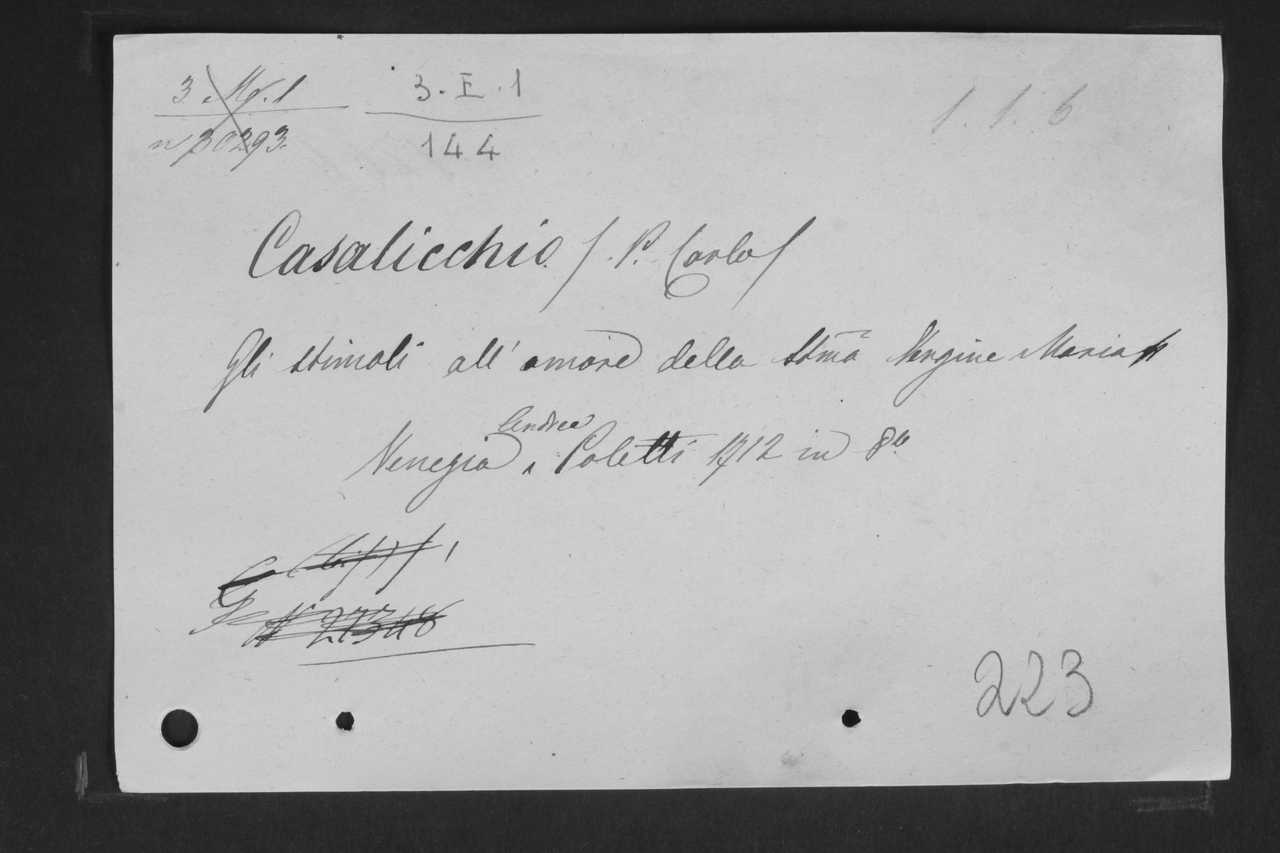 3. My. 1 3. E. 1 1. 1. 6
n 30293. 144
Casalicchio (P. Carlo)
Gli stimoli all' amore della Ssma Vergine Maria
Venezia Andrea Poletti 1712 in 8°
N 27346
223